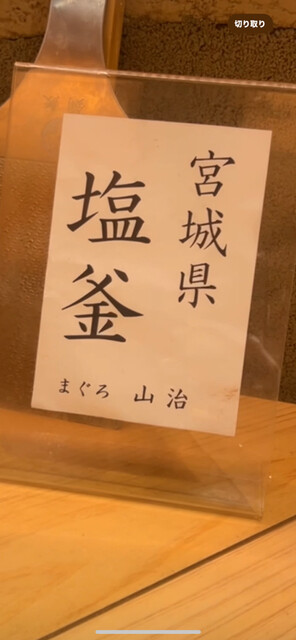 切り取り
宮城県
塩釜
まぐろ 山治